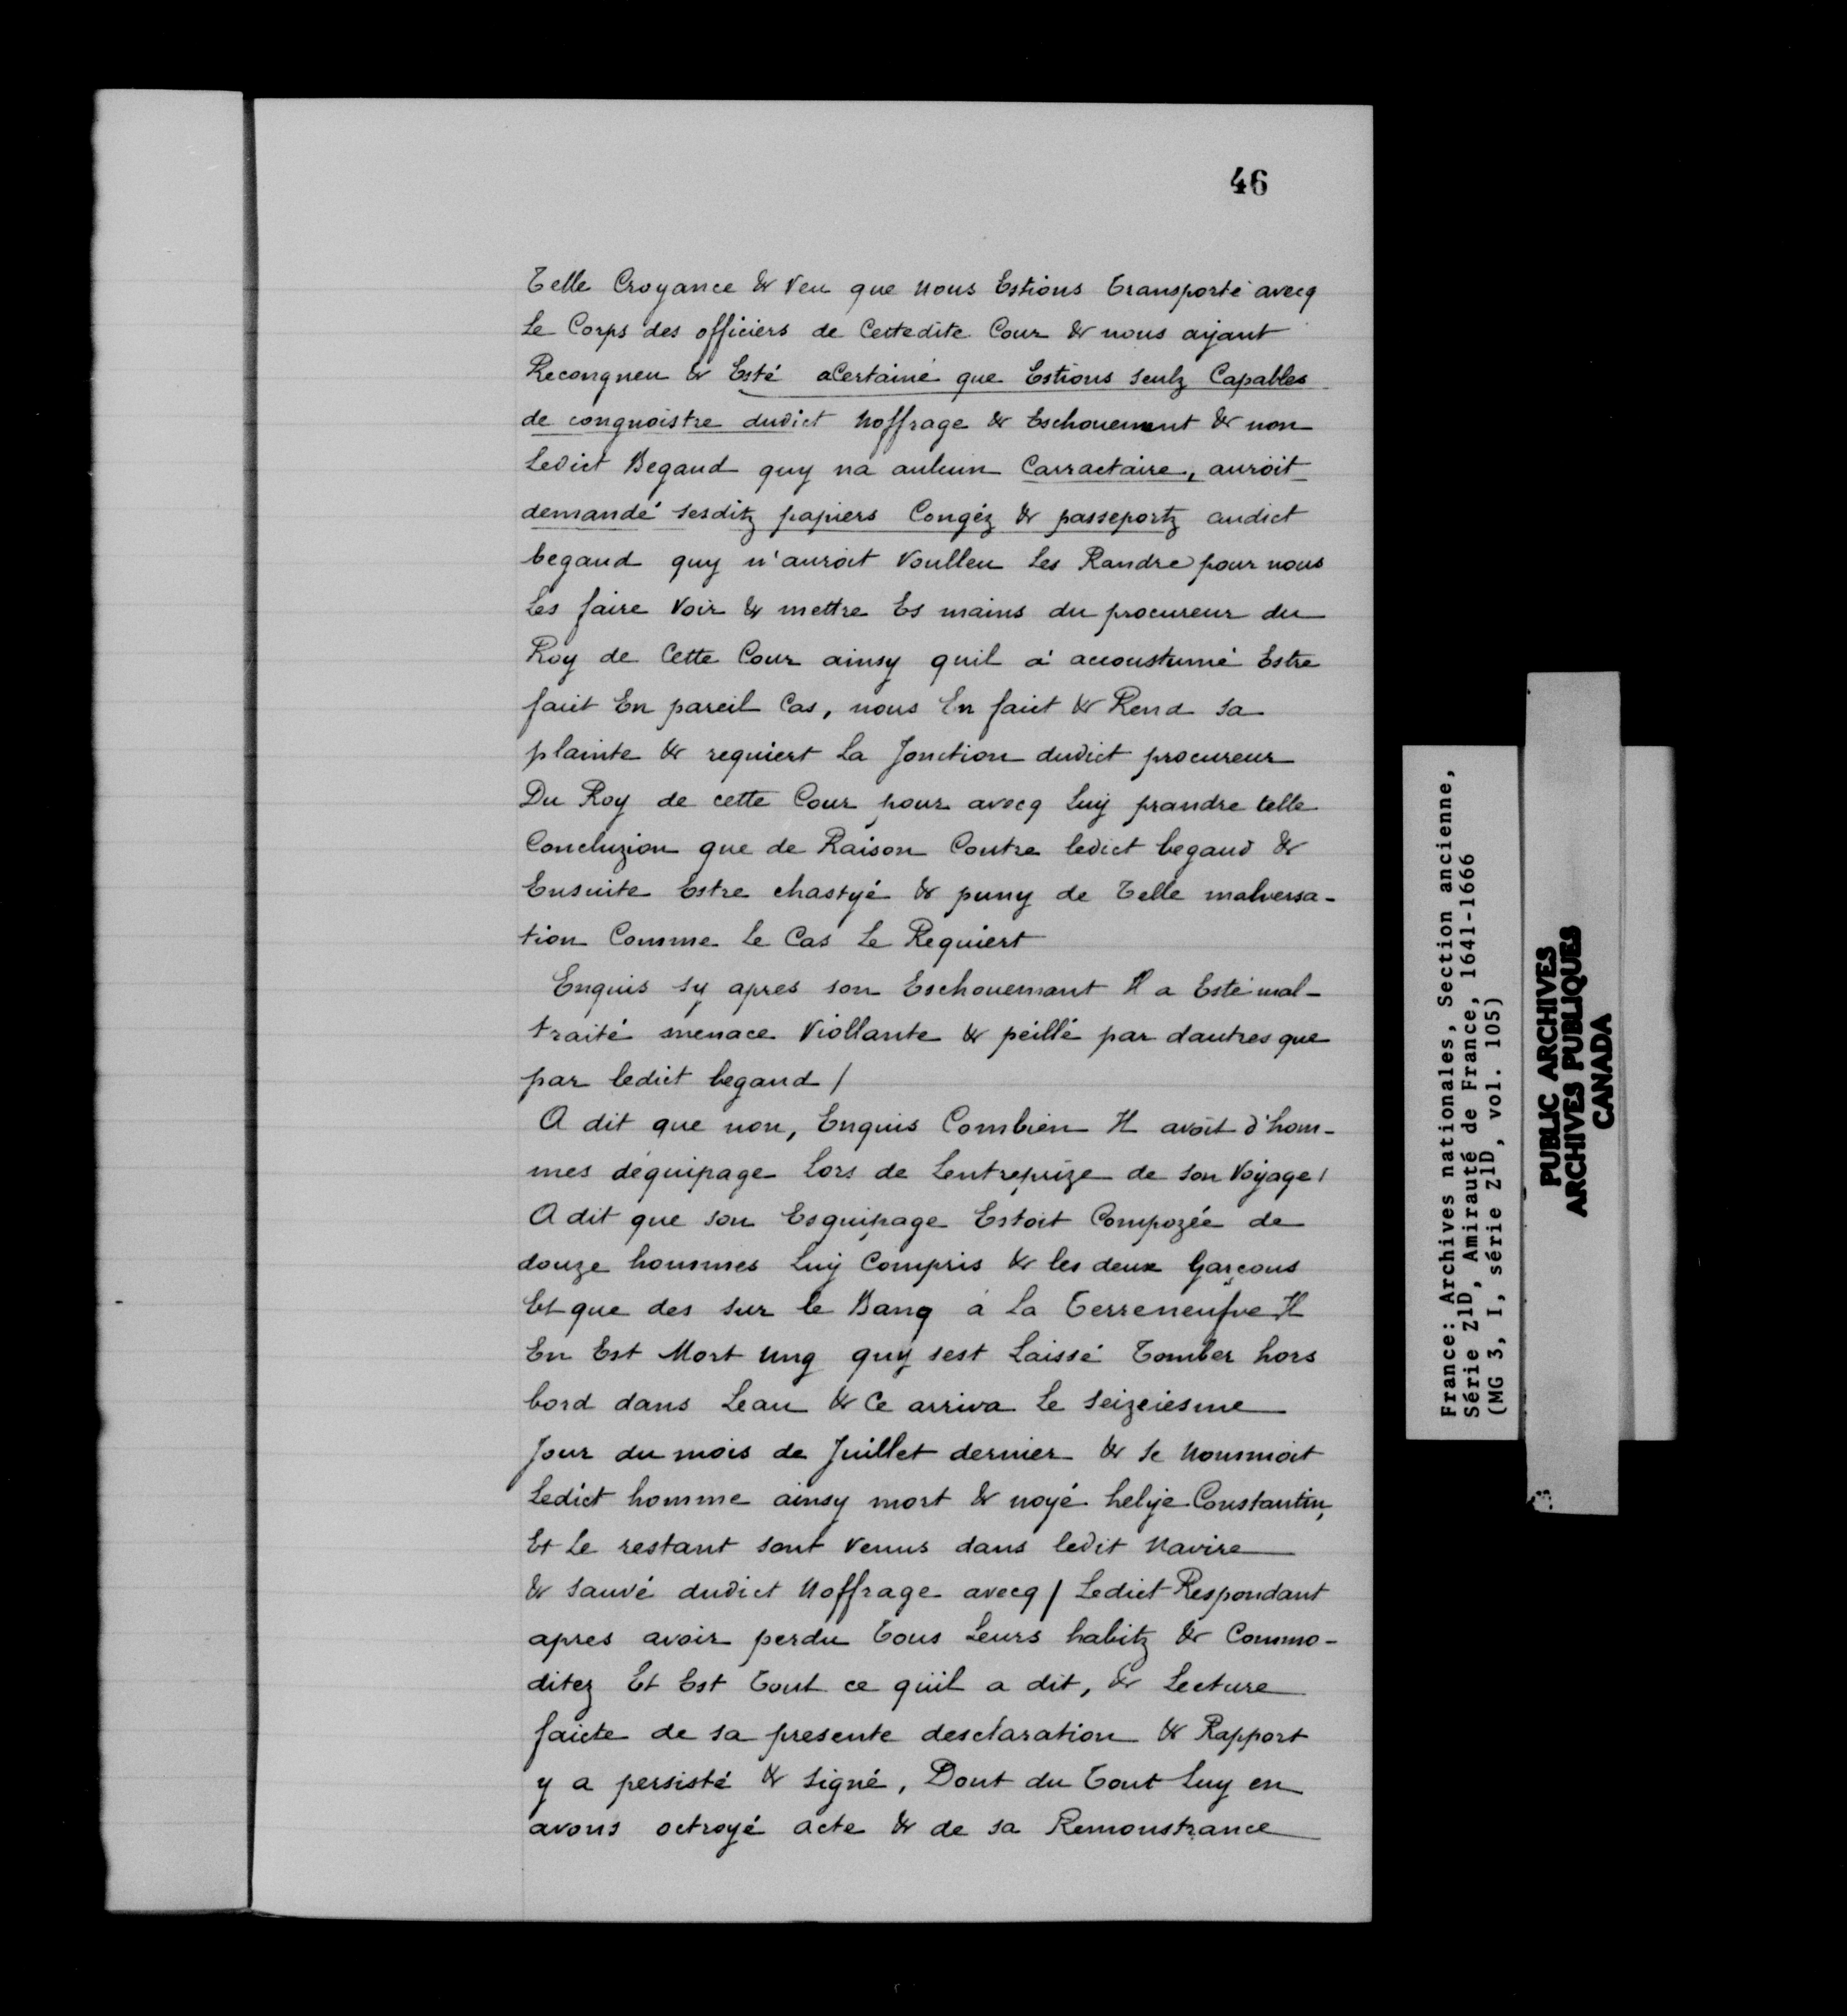 46
Telle Croyance & Veu que nous Estions Transporté avecq
Le Corps des officiers de Cettedite Cour & nous ayant
Recongneu & Esté aCertainé que Estions seulz Capables
de congnoistre dudict Noffrage & Eschouement & non
Ledict Begaud quy na aulcun Carractaire, auroit
demandé sesditz papiers Congéz & passeportz audict
begaud quy n'auroit Voulleu Les Randre pour nous
Les faire Voir & mettre Es mains du procureur du
Roy de Cette Cour ainsy quil a accoustumé Estre
faict En pareil Cas, nous En faict & Rend sa
plainte & requiert La Jonction dudict procureur
Du Roy de cette Cour pour avecq Luy prandre telle
Concluzion que de Raison Contre ledict begaud &
Ensuite Estre chastyé & puny de Telle malversa-
tion Comme Le Cas Le Requiert
Enquis sy apres son Eschouemant Il a Esté mal-
traité menace Viollante & peillé par dautres que
par ledict begaud /
A dit que non, Enquis Combien Il avoit d'hom-
mes déquipage Lors de Lentreprize de son Voyage /
A dit que son Esquipage Estoit Compozée de
douze hommes Luy Compris & les deux Garçons
Et que des sur le Banq à La Terreneufve Il
En Est Mort ung quy sest Laissé Tomber hors
bord dans Leau & Ce arriva Le seizeiesme
Jour du mois de Juillet dernier & se Nommoit
Ledict homme ainsy mort & noyé helye Constantin,
Et Le restant sont Venus dans ledit Navire
& sauvé dudict Noffrage avecq / Ledict Respondant
apres avoir perdu Tous Leurs habitz & Commo-
ditez Et Est Tout ce quil a dit, & Lecture
faicte de sa presente desclaration & Rapport
y a persisté & signé, Dont du Tout Luy en
avons octroyé acte & de sa Remonstrance
France: Archives nationales, Section ancienne,
Série Z1D, Amirauté de France, 1641-1666
(MG 3, I, série Z1D, vol. 105)
PUBLIC ARCHIVES
ARCHIVES PUBLIQUES
CANADA